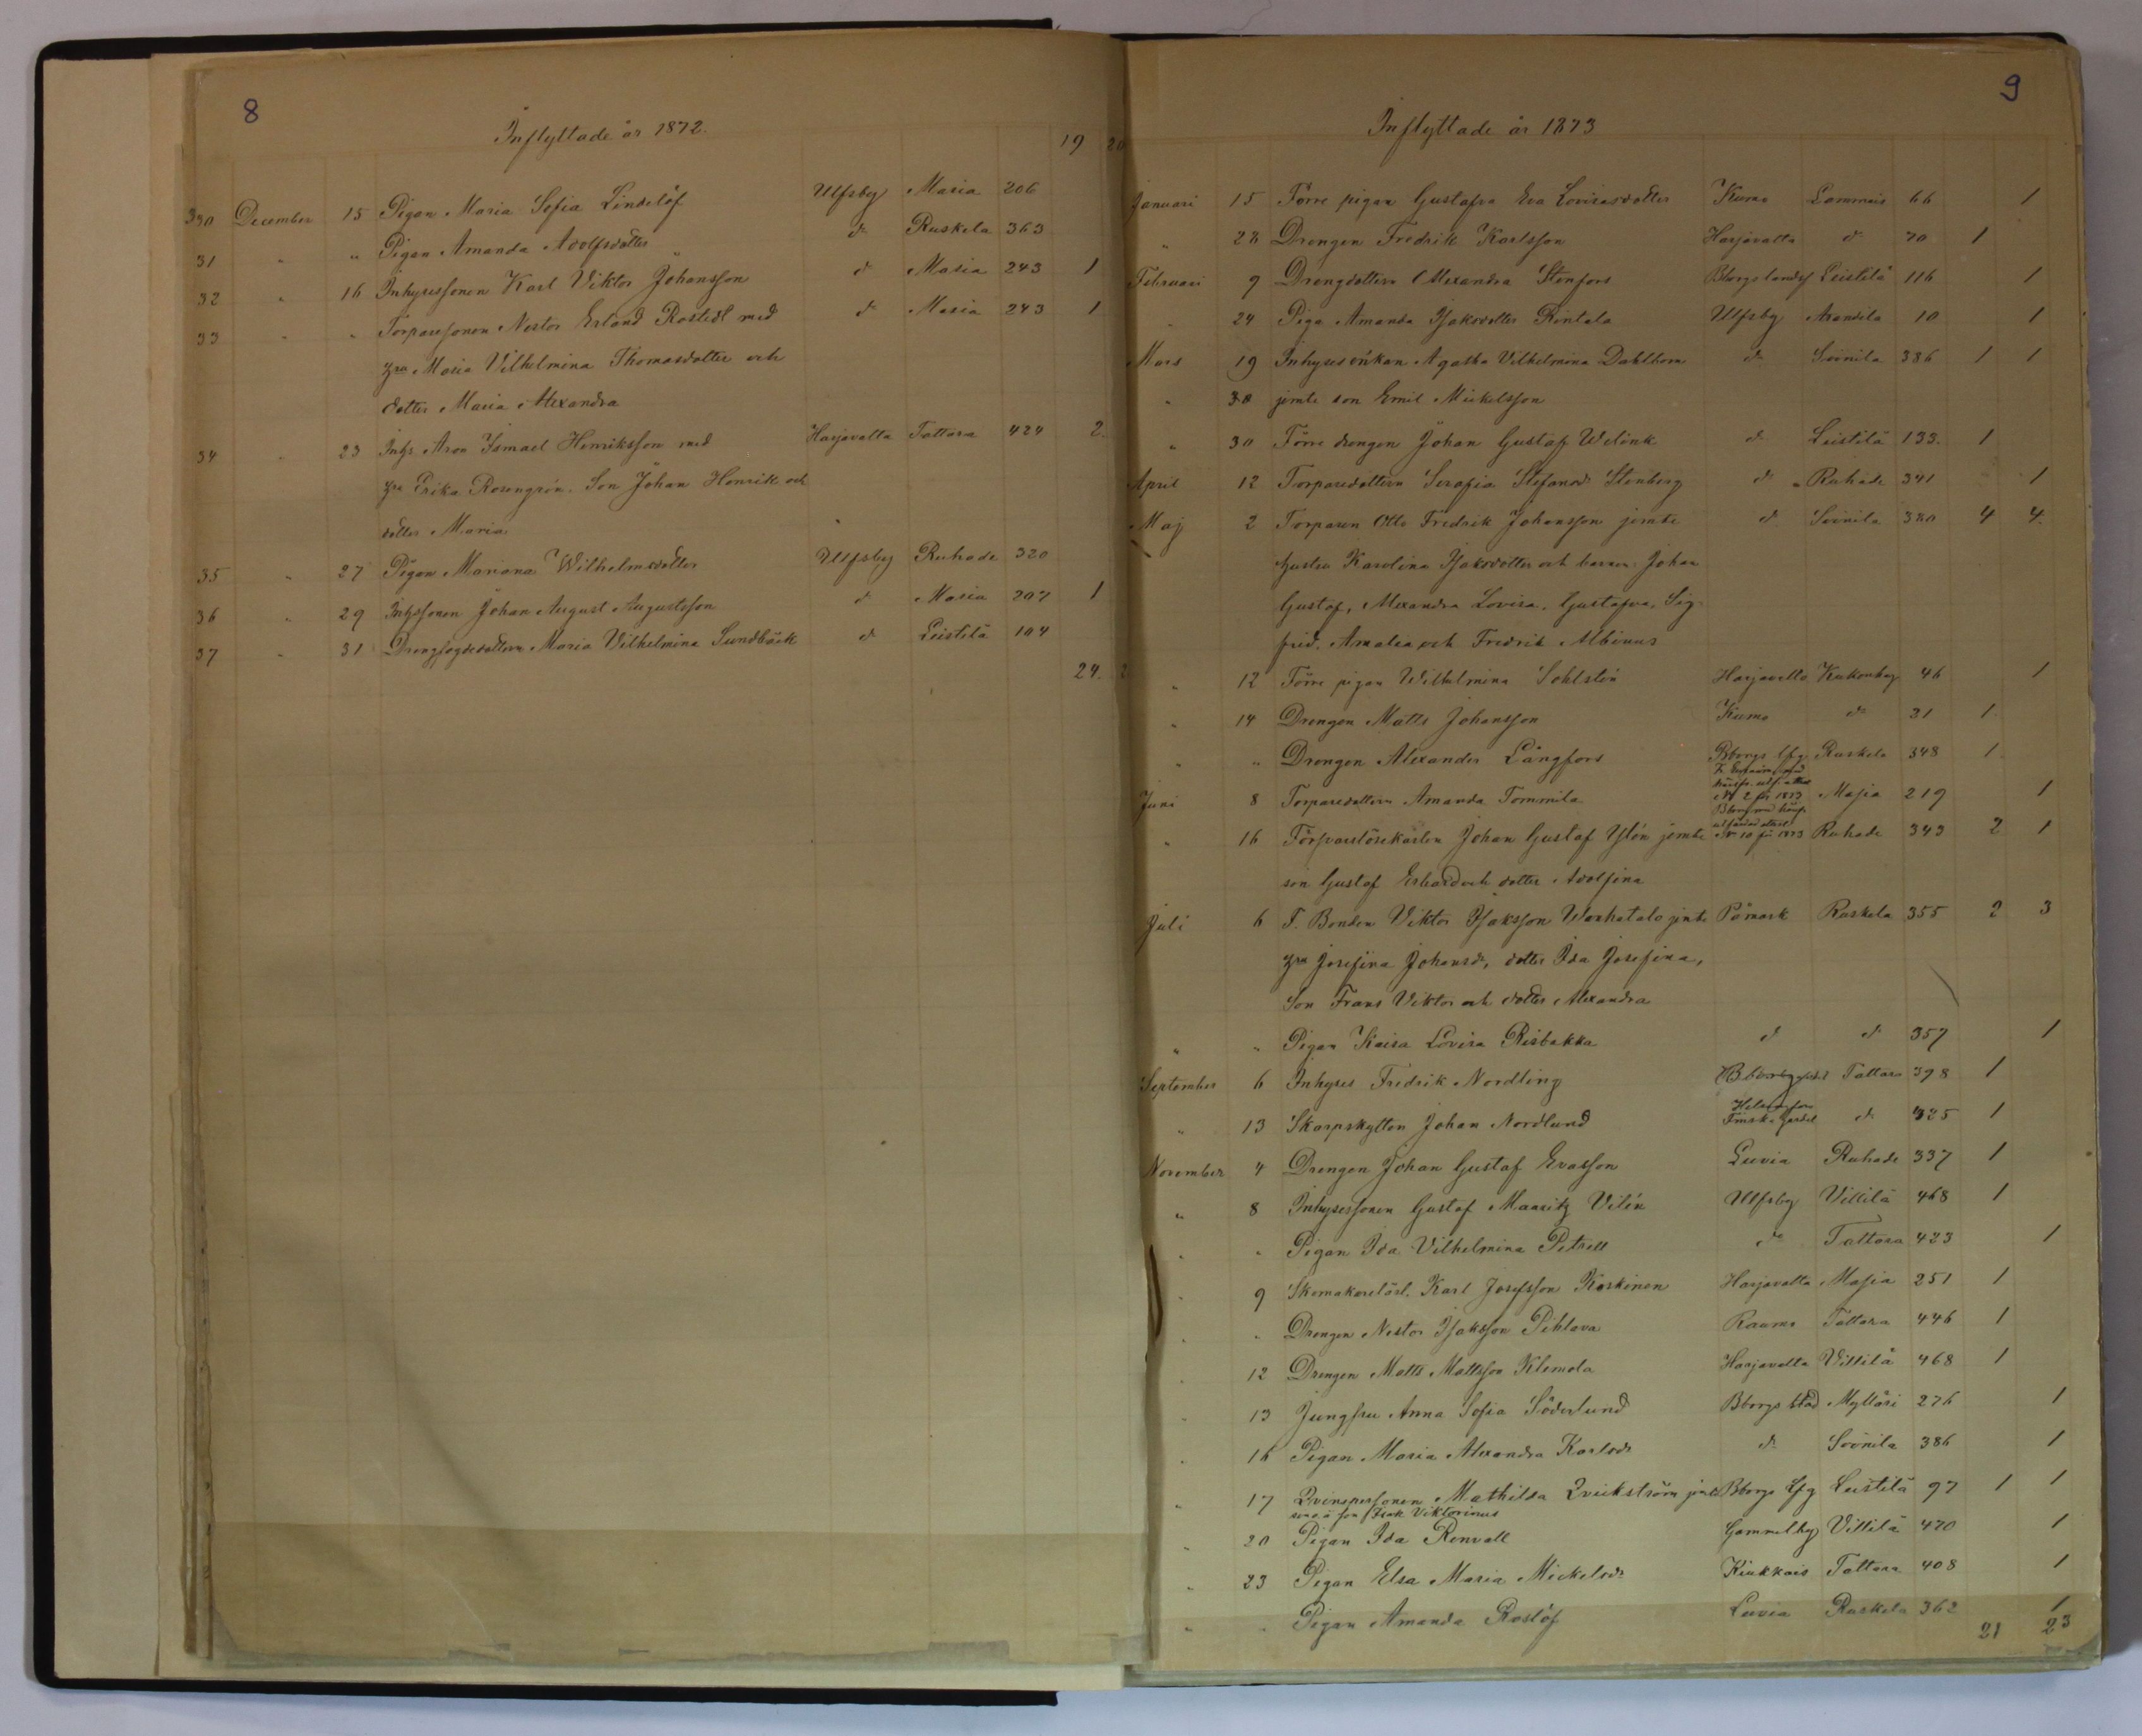 8
Inflyttade år 1872.
19 20
330 December 15 Pigan Maria Sofia Lindelöf Ulfsby Masia 206
31 " " Pigan Amanda Adolfsdotter d Ruskela 363
32 " 16 Inhysessonen Karl Viktor Johansson d Masia 243 1
33 " " Torparesonen Nestor Erland Rostedt med d Masia 243 1
hu Maria Vilhelmina Thomasdotter och
dotter Maria Alexandra
34 " 23 Inhs Aron Ismael Henriksson med Harjavalta Tattara 424 2.
hu Erika Rosengrén. Son Johan Henrik och
dotter Maria
35 " 27 Pigan Mariana Wilhelmsdotter Ulfsby Ruhade 320
36 " 29 Inhssonen Johan August Augustsson d Masia 207 1
37 " 31 Drengfogdedottern Maria Vilhelmina Sundbäck d Leistilä 104
24.
9
Inflyttade år 1873
Januari 15 Förre pigan Gustafva Eva Lovisasdotter Kumo Lammais 66 1
" 28 Drengen Fredrik Karlsson Harjavalta d 70 1
Februari 9 Drengdottern Alexandra Stenfors Bborgs landsf Leistilä 116 1
" 24 Piga Amanda Isaksdotter Rintala Ulfsby Anandila 10 1
Mars 19 Inhysesenkan Agatha Vilhelmina Dahlbom d Soinila 386 1 1
" 30 jemte son Emil Mickelsson
" 30 Förre drengen Johan Gustaf Welink d Leistilä 133. 1
April 12 Torparedottern Serafia Stefansd: Stenberg d Ruhade 341 1
Maj 2 Torparen Otto Fredrik Johansson jemte d Soinila 380 4 4.
hustru Karolina Isaksdotter och barnen: Johan
Gustaf, Alexandra Lovisa, Gustafva, Sig-
frid, Amalia och Fredrik Albinus
" 12 Förre pigan Wilhelmina Sohlstén Harjavalta Kukonharj 46 1
" 14 Drengen Matts Johansson Kumo d 21 1
" " Drengen Alexander Långfors Bborgs lfg Ruskela 348 1
Juni 8 Torparedottern Amanda Tommila No 2 för 1873 Masia 219 1
" 16 Försvarslösekarlen Johan Gustaf Ylén jemte No 10 för 1873 Ruhade 343 2 1
son Gustaf Erhard och dotter Adolfina
Juli 6 F. Bonden Viktor Isaksson Warhatalo jemte Påmark Ruskela 355 2 3
hu Josefina Johansd:, dotter Ida Josefina,
Son Frans Viktor och dotter Alexandra
" " Pigan Kaisa Lovisa Risbakka d d 357 1
September 6 Inhyses Fredrik Nordling Bborgs Tattara 398 1
" 13 Skarpskytten Johan Nordlund Helsingfors Finska Gardet d 425 1
November 4 Drengen Johan Gustaf Evasson Luvia Ruhade 337 1
" 8 Inhysessonen Gustaf Mauritz Vilén Ulfsby Villilä 468 1
" " Pigan Ida Vilhelmina Petrell d Tattara 423 1
" 9 Skomakarelärl. Karl Josefsson Koskinen Harjavalta Masia 251 1
" " Drengen Nestor Isaksson Pihlava Raumo Tattara 446 1
" 12 Drengen Matts Mattsson Klemola Harjavalta Villilä 468 1
" 13 Jungfru Anna Sofia Söderlund Bborgs stad Mylläri 276 1
" 16 Pigan Maria Alexandra Karlsd: d Soinila 386 1
" 17 Qvinspersonen Mathilda Qvickström jemte Bborgs lfg Leistilä 97 1 1
son Isak Viktorinus
" 20 Pigan Ida Renvall Gammelby Villilä 470 1
" 23 Pigan Elsa Maria Mickelsd: Kiukkais Tattara 408 1
" " Pigan Amanda Roslöf Luvia Ruskela 362 1
21 23